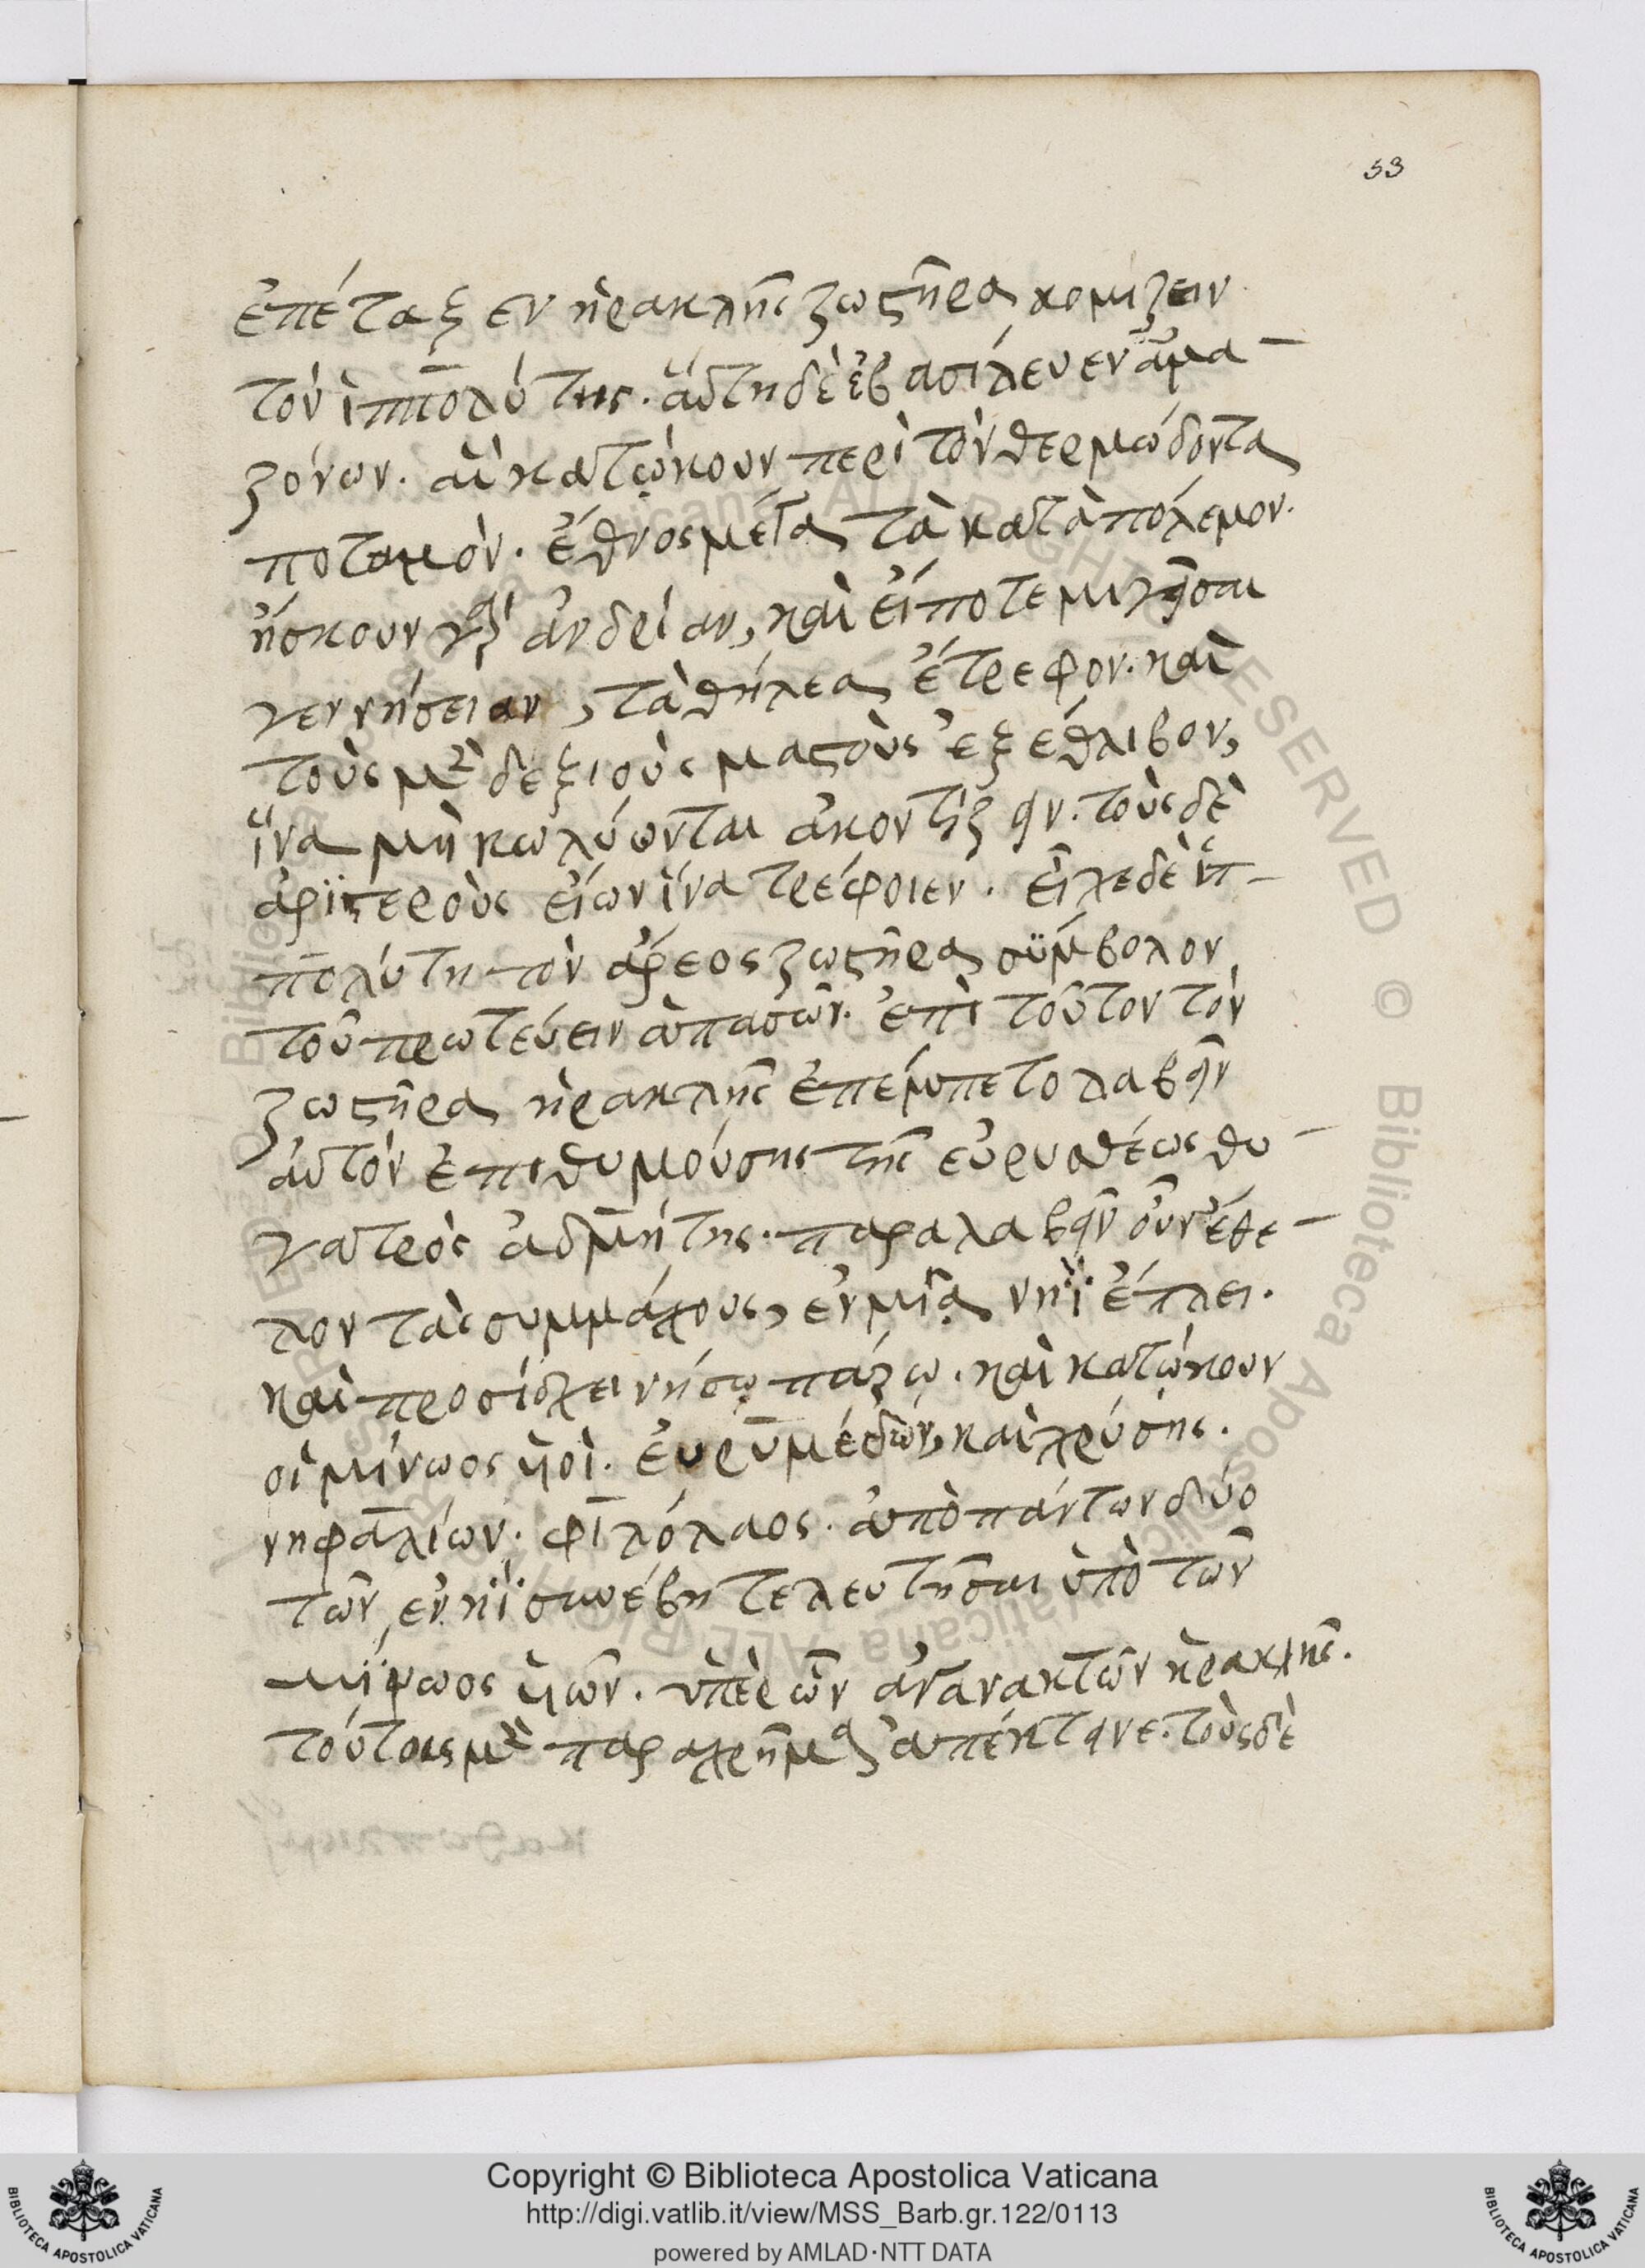 53
ἐπέταξεν ἡρακλῆς ζωστῆρα κομίζειν
τὸν ἱππολύτης. αὕτη δὲ ἐβασίλευεν ἀμα-
ζόνων. αἳ κατῴκουν περὶ τὸν θερμώδοντα
ποταμὸν. ἔθνος μέγα τὰ κατὰ πόλεμον.
ἤσκουν γὰρ ἀνδρίαν, καὶ εἴποτε μιγεῖσαι
γεννήσειαν, τὰ θήλεα ἔτρεφον. καὶ
τοὺς μὲν δεξιοὺς μαστοὺς ἐξέθλιβον,
ἵνα μὴ κωλύωνται ἀκοντίζειν. τοὺς δὲ
ἀρϊστεροὺς εἴων ἵνα τρέφοιεν. εἶχε δὲ ἱπ-
πολύτη τὸν ἄρεος ζωστῆρα σύμβολον
τοῦ πρωτεύειν ἁπασῶν. ἐπὶ τοῦτον τὸν
ζωστῆρα ἡρακλῆς ἐπέμπετο λαβεῖν
αὐτὸν ἐπιθυμούσης τῆς εὐρυσθέως θυ-
γατρὸς ἀδμήτης. παραλαβεῖν οὖν ἐθε-
λον τὰς συμμάχους, ἐν μιᾷ νηῒ ἔπλει.
καὶ προσίσχει νήσῳ πάζω. καὶ κατῴκουν
οἱ μίνωος ὑοὶ. ἐυρυμέδων, καὶ χρύσης.
νηφαλίων. φιλόλαος. ἀπὸ πάντων δύο
τῶν ἐν νηῒ συνέβη τελευτῆσαι ὑπὸ τῶν
μίνωος ὑῶν. ὑπὲρ ὧν ἀγανακτῶν ἡρακλῆς.
τούτους μὲν παραχρῆμα ἀπέκτεινε. τοὺς δὲ
Copyright © Biblioteca Apostolica Vaticana
http://digi.vatlib.it/view/MSS_Barb.gr.122/0113
powered by AMLAD·NTT DATA